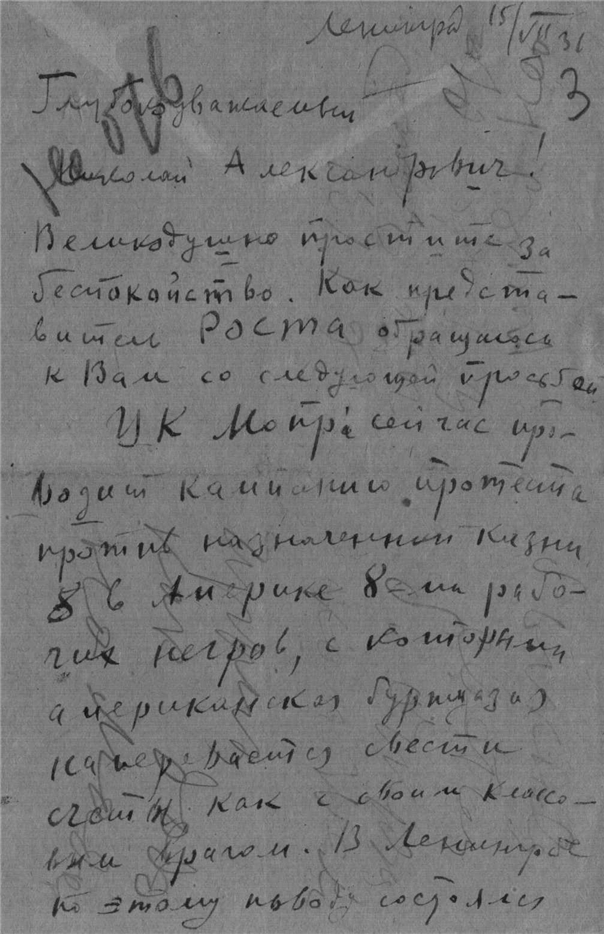 Ленинград 15/VII 31
3
Глубокоуважаемый
Николай Александрович!
Великодушно простите за
беспокойство. Как предста-
витель Роста обращаюсь
к Вам со следующей просьбой
ЦК Мопр'а сейчас про-
водит кампанию протеста
против назначенной казни
8 в Америке 8-ми рабо-
чих негров, с которыми
американская буржуазия
намеревается свести
счеты как с своим классо-
вым врагом. В Ленинграде
по этому поводу состоялся